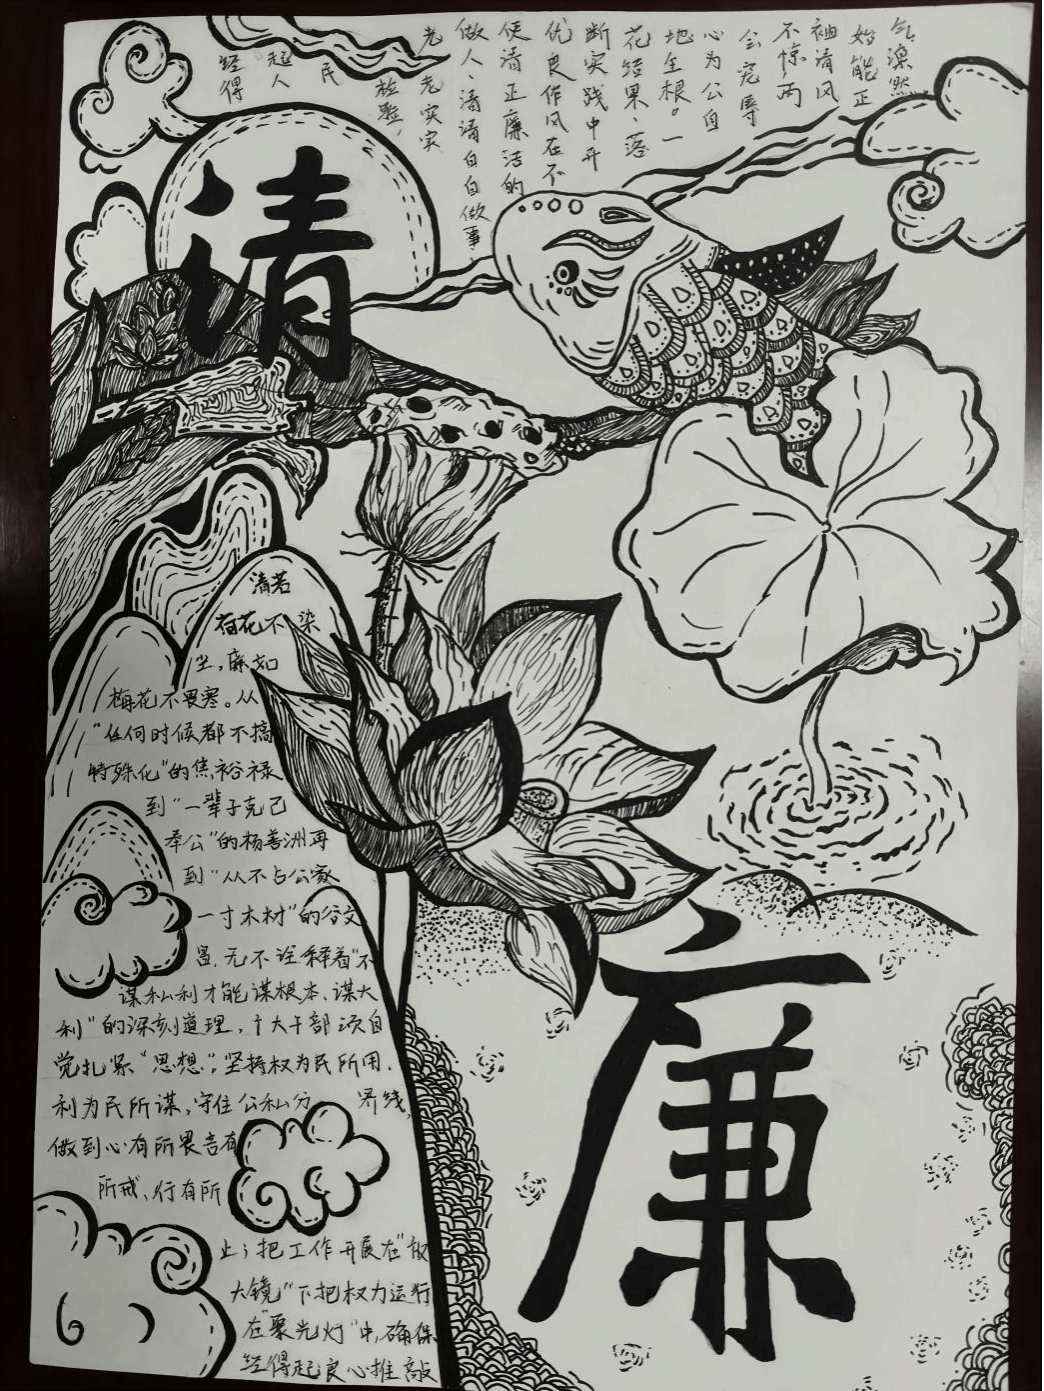 清
廉
清若
荷花不染
尘,廉如
梅花不畏寒。从
“任何时候都不搞
特殊化”的焦裕禄
到“一辈子克己
奉公”的杨善洲再
到“从不占公家
一寸木材”的谷文
昌,无不诠释着“不
谋私利才能谋根本、谋大
利”的深刻道理,广大干部须自
觉扎紧“思想”,坚持权为民所用、
利为民所谋,守住公私分 界线,
做到心有所畏言有
所戒、行有所
止;把工作开展在“放
大镜”下把权力运行
在“聚光灯”中,确保
经得起良心推敲
经得
起人
民
检验,
老老实实
做人、清清白白做事,
使清正廉洁的
优良作风在不
断实践中开
花结果、落
地生根。一
心为公自
会宠辱
不惊,两
袖清风
始能正
气凛然